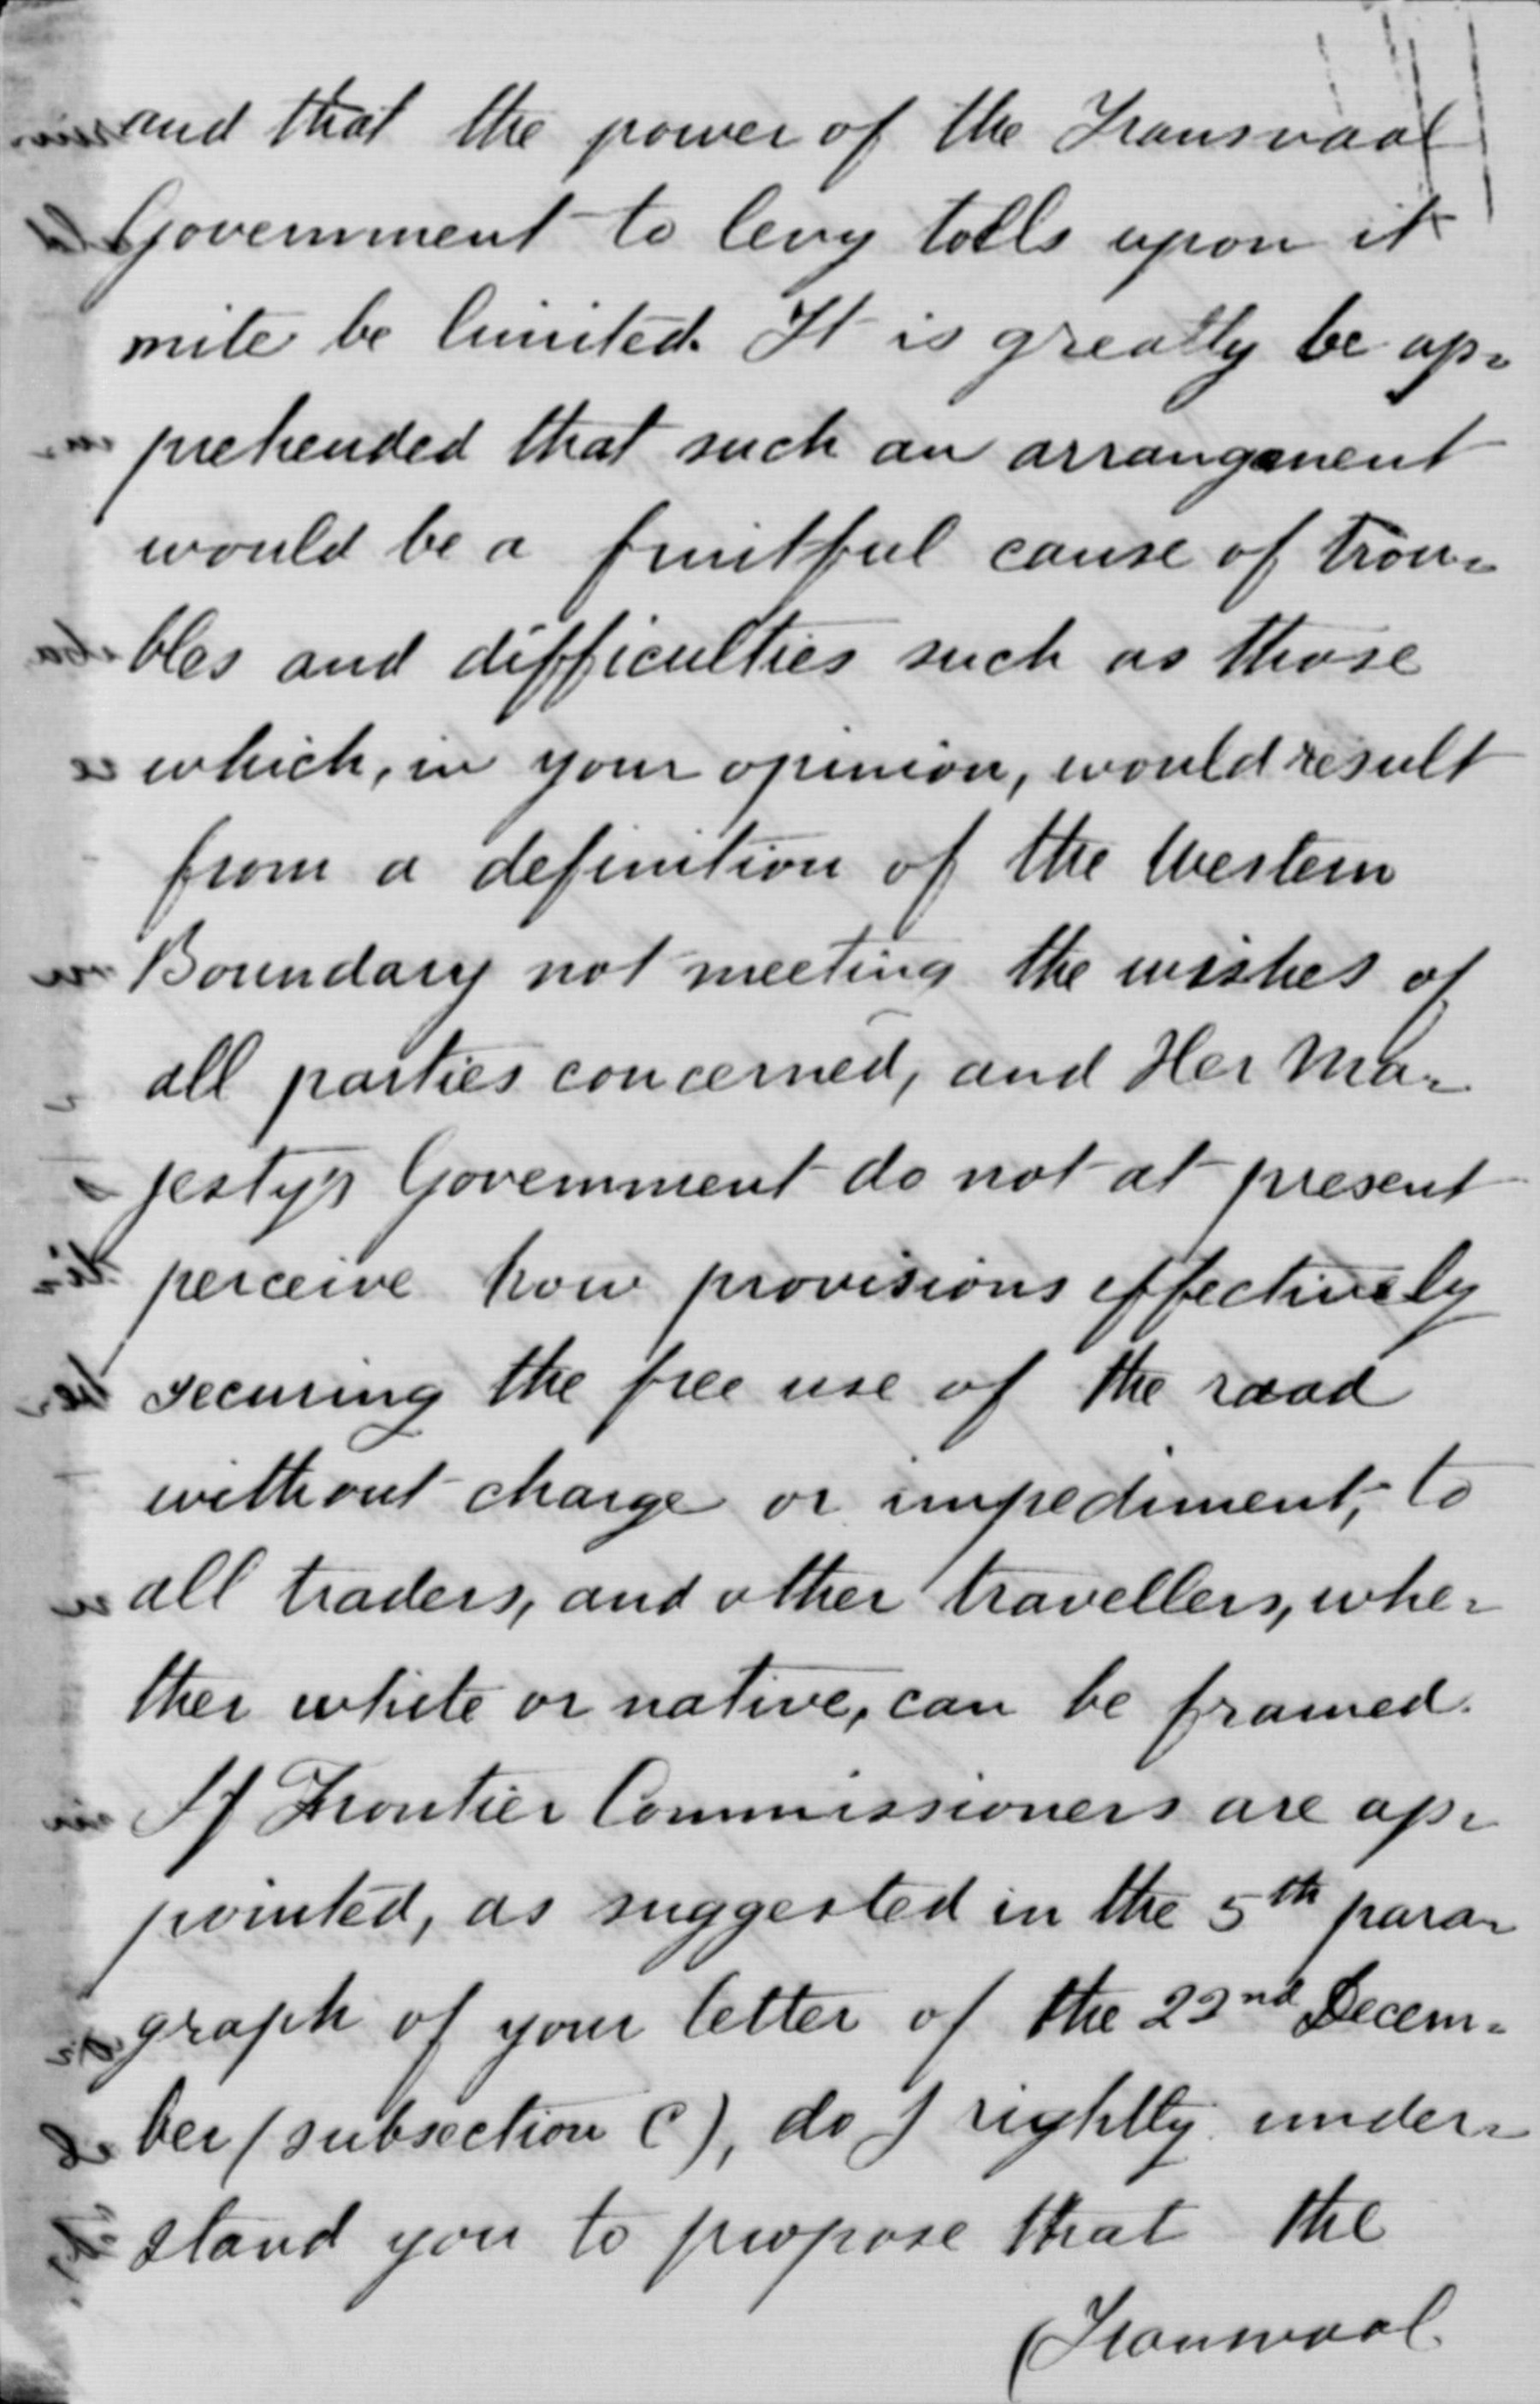 and that the power of the Transvaal
Government to levy tolls upon it
mite be limited. It is greatly be ap=
prehended that such an arrangement
would be a fruitful cause of trou=
bles and difficulties such as those
which, in your opinion, would result
from a definition of the Western
Boundary not meeting the wishes of
all parties concerned, and Her Ma=
jesty's Government do not at present
perceive how provisions effectively
securing the free use of the road
without charge or impediment, to
all traders, and other travellers, whe=
ther white or native, can be framed.
If Frontier Commissioners are ap=
pointed, as suggested in the 5th para=
graph of your letter of the 22nd Decem=
ber (subsection C), do I rightly under=
stand you to propose that the
(Transvaal